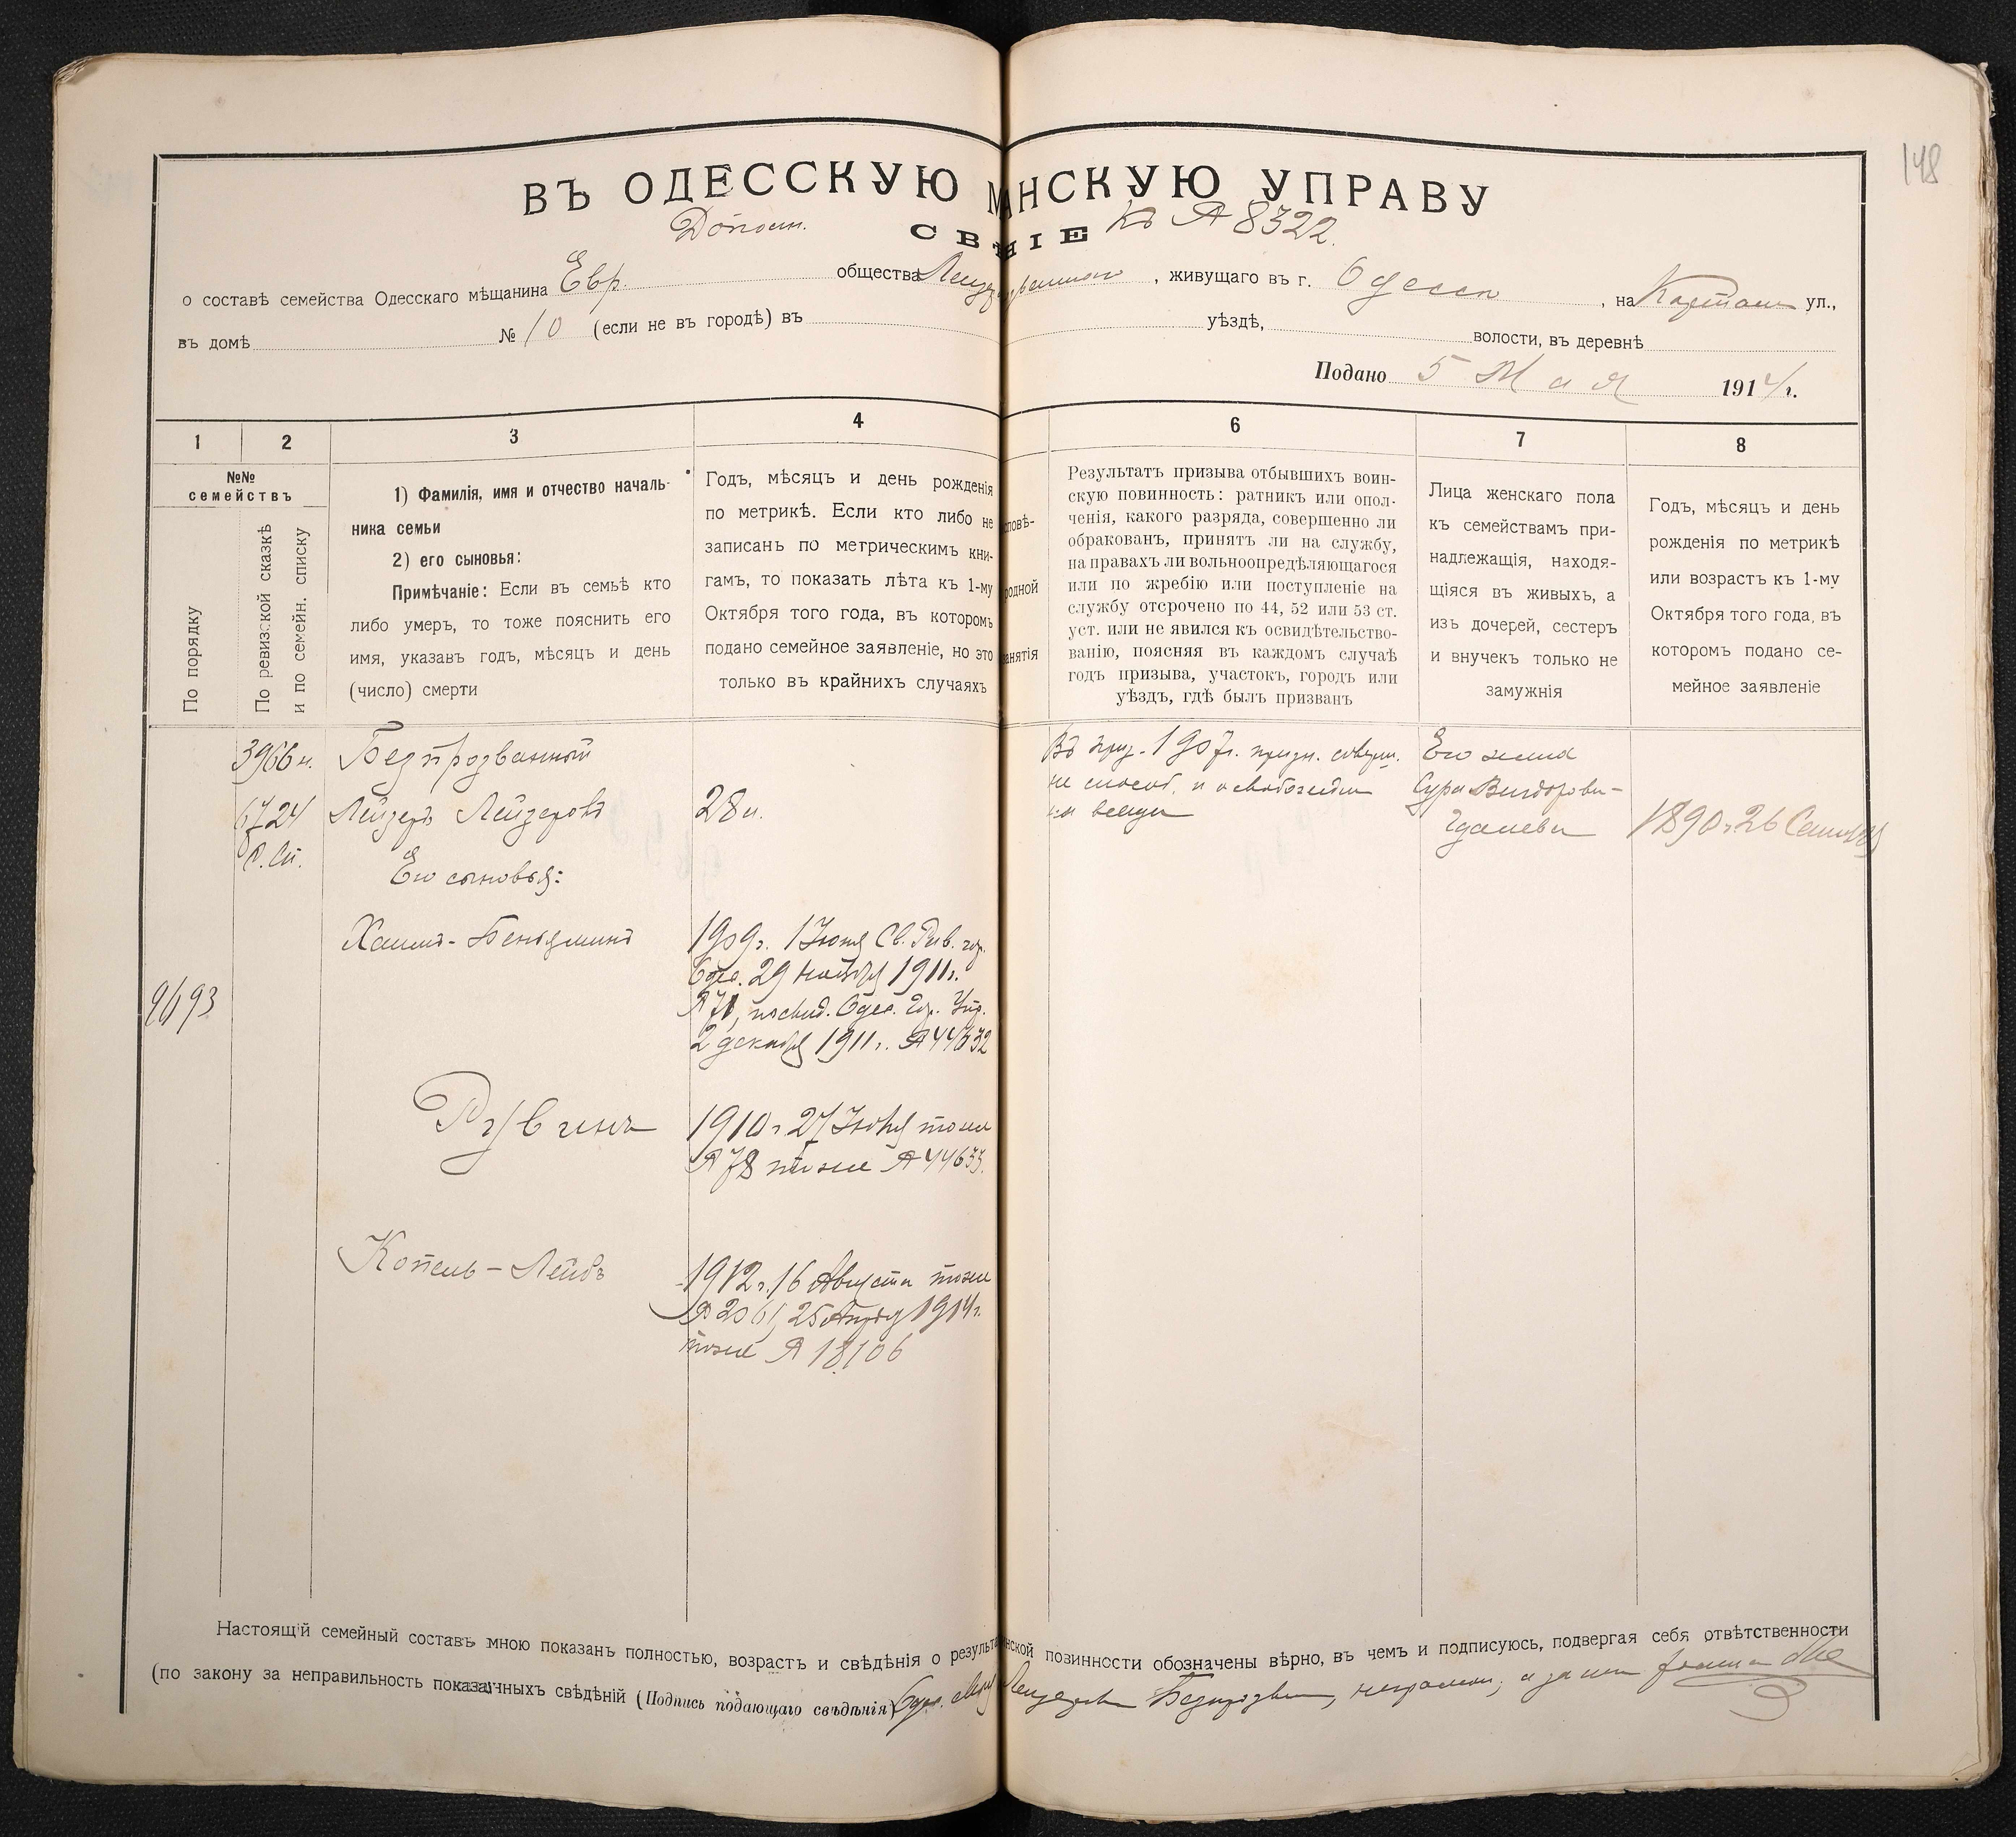 148
ВЪ ОДЕССКУЮ М НСКУЮ УПРАВУ
Дополн.
СВ НІЕ къ № 8322.
о составѣ семейства Одесскаго мѣщанина Евр. общества , живущаго въ г. Одессе , на ул.,
въ домѣ № 10 (если не въ городѣ) въ уѣздѣ, волости, въ деревнѣ
Подано 5 Мая 1914 г.
1 2 3 4 6 7 8
№№
семействъ
По порядку
По ревизской сказкѣ
и по семейн. списку
1) Фамилія, имя и отчество началь-
ника семьи
2) его сыновья:
Примѣчаніе: Если въ семьѣ кто
либо умеръ, то тоже пояснить его
имя, указавъ годъ, мѣсяцъ и день
(число) смерти
Годъ, мѣсяцъ и день рожденія
по метрикѣ. Если кто либо не
записанъ по метрическимъ кни-
гамъ, то показать лѣта къ 1-му
Октября того года, въ которомъ
подано семейное заявленіе, но это
только въ крайнихъ случаяхъ
повѣ-
родной
анятія
Результатъ призыва отбывшихъ воин-
скую повинность: ратникъ или опол-
ченія, какого разряда, совершенно ли
обракованъ, принятъ ли на службу,
на правахъ ли вольноопредѣляющагося
или по жребію или поступленіе на
службу отсрочено по 44, 52 или 53 ст.
уст. или не явился къ освидѣтельство-
ванію, поясняя въ каждомъ случаѣ
годъ призыва, участокъ, городъ или
уѣздъ, гдѣ былъ призванъ
Лица женскаго пола
къ семействамъ при-
надлежащія, находя-
щіяся въ живыхъ, а
изъ дочерей, сестеръ
и внучекъ только не
замужнія
Годъ, мѣсяцъ и день
рожденія по метрикѣ
или возрастъ къ 1-му
Октября того года, въ
которомъ подано се-
мейное заявленіе
3966 н. Безпрозванный
6724 Лейзеръ Лейзеровъ 28 л.
С. Сп.
Его сыновья:
Хаимъ-Беньяминъ
1909 г. 1 Іюня Св. Рав. гор.
Одес. 29 ноября 1911 г.
№ 71, Одес. Гор. Упр.
2 декабря 1911 г. № 44632
9693
Рувинъ
1910 г. 27 тоже
№ 78 тоже № 44633.
Копель-Лейбъ
1912 г. 16 Августа тоже
№ 2061, 25 Апрѣля 1914 г.
тоже № 18106
Въ приз. 1907 г. призн. соверш.
не способ. и освобожденъ
Его жена
Сура
1890 г. 26
Настоящій семейный составъ мною показанъ полностью, возрастъ и свѣдѣнія о результа нской повинности обозначены вѣрно, въ чемъ и подписуюсь, подвергая себя отвѣтственности
(по закону за неправильность показанныхъ свѣдѣній (Подпись подающаго свѣдѣнія) Одес. Лейзеровъ Безпрозван, неграмот, а за него